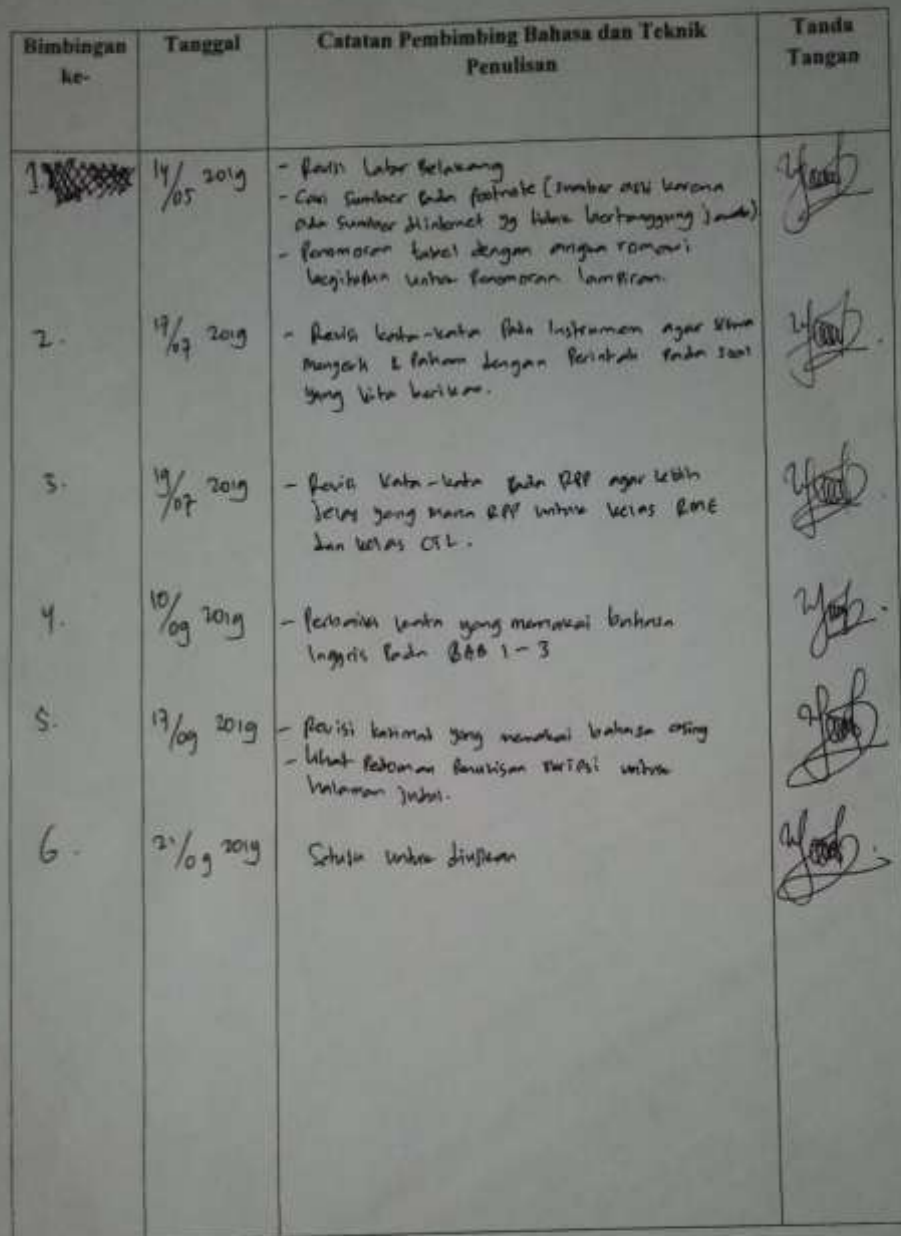 Bimbingan ke-
Tanggal
Catatan Pembimbing Bahasa dan Teknik
Penulisan
Tanda
Tangan
1
14/05 2019
- Revisi Latar Belakang
- Cari Sumber Pada footnote (sumber asli karena
ada sumber diinternet yg tidak bertanggung jawab)
- Penomoran tabel dengan angka romawi
begitupun untuk Penomoran lampiran.
2.
17/07 2019
- Revisi kata-kata Pada Instrumen agar siswa
mengerti & Paham dengan Perintah Pada soal
yang kita berikan.
3.
19/07 2019
- Revisi kata-kata Pada RPP agar lebih
jelas yang mana RPP untuk kelas RME
dan kelas CTL.
4.
10/09 2019
- Perbaiki kata yang memakai bahasa
Inggris Pada BAB 1-3
5.
17/09 2019
- Revisi kalimat yang memakai bahasa asing
- Lihat Pedoman Penulisan skripsi untuk
halaman judul.
6.
/09 2019
Setuju untuk diujikan